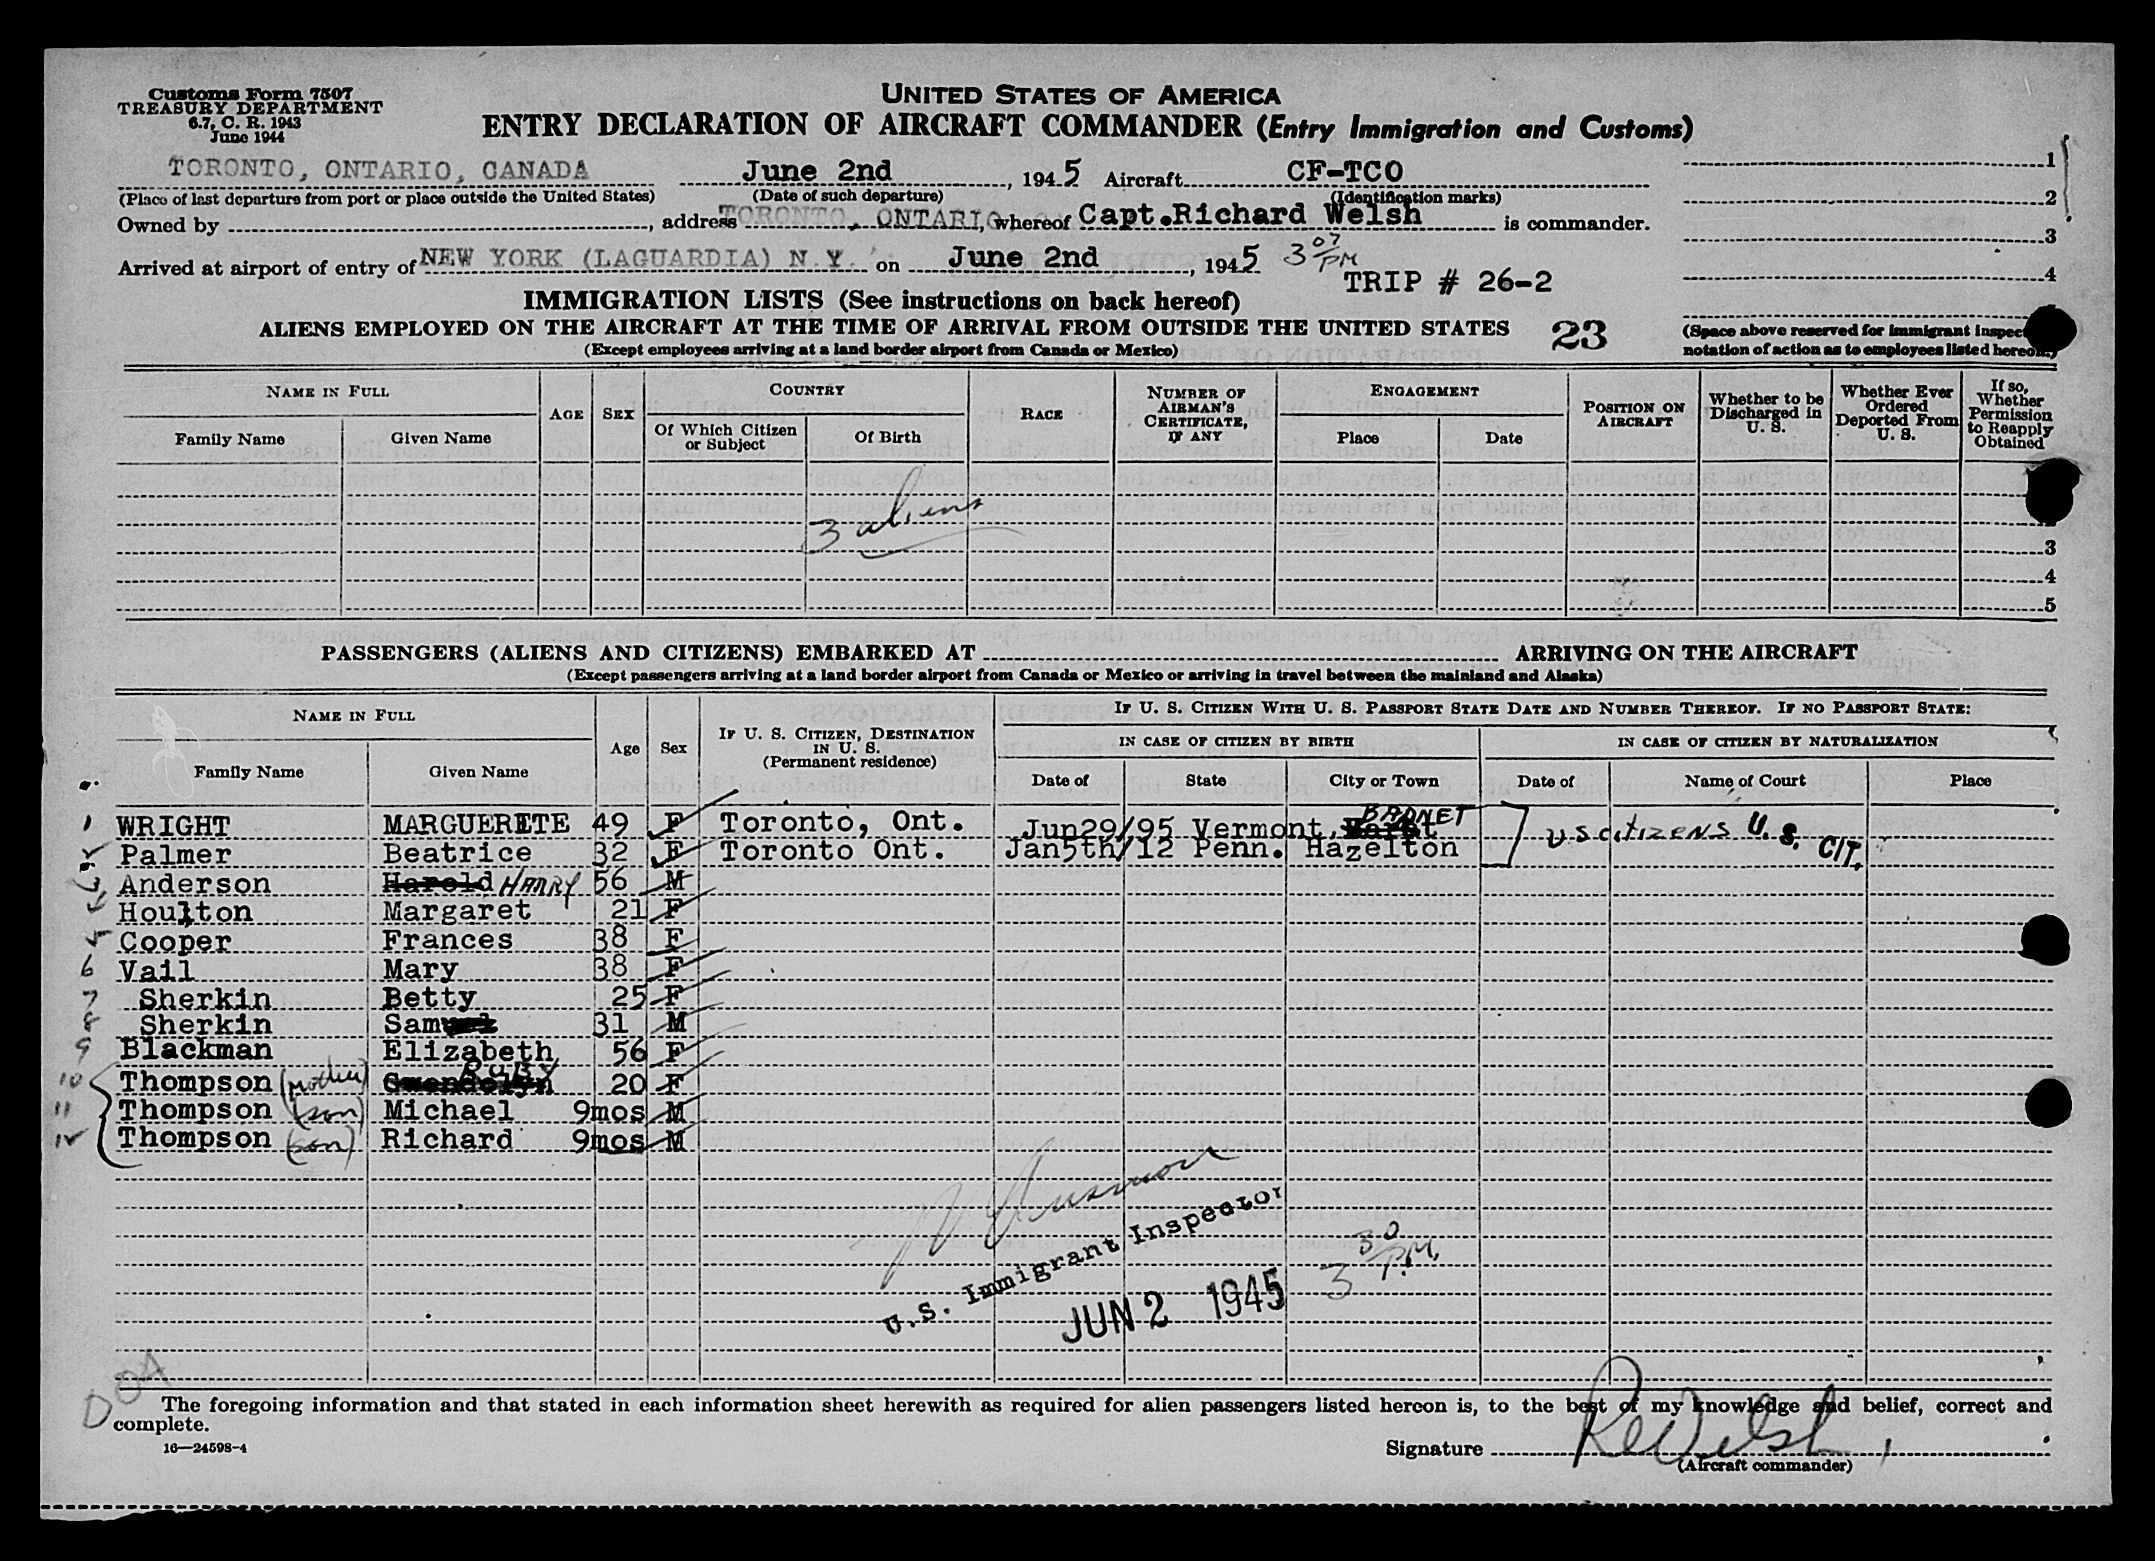 Customs Form 7507
TREASURY DEPARTMENT
6.7, C. R. 1943
June 1944
UNITED STATES OF AMERICA
ENTRY DECLARATION OF AIRCRAFT COMMANDER (Entry Immigration and Customs)
TORONTO, ONTARIO, CANADA June 2nd, 1945 Aircraft CF-TCO 1
(Place of last departure from port or place outside the United States) (Date of such departure) (Identification marks) 2
Owned by , address TORONTO, ONTARIO, whereof Capt. Richard Welsh is commander.
3
Arrived at airport of entry of NEW YORK (LAGUARDIA) N.Y. on June 2nd, 1945 3 07 PM
4
TRIP # 26-2
IMMIGRATION LISTS (See instructions on back hereof)
ALIENS EMPLOYED ON THE AIRCRAFT AT THE TIME OF ARRIVAL FROM OUTSIDE THE UNITED STATES 23
(Except employees arriving at a land border airport from Canada or Mexico)
(Space above reserved for immigrant
notation of action as to employees listed
NAME IN FULL
Family Name Given Name
AGE SEX
COUNTRY
Of Which Citizen or Subject Of Birth
RACE
NUMBER OF AIRMAN'S CERTIFICATE, IF ANY
ENGAGEMENT
Place Date
POSITION ON AIRCRAFT
Whether to be Discharged in U. S.
Whether Ever Ordered Deported From U. S.
If so, Whether Permission to Reapply Obtained
3 aliens
3
4
5
PASSENGERS (ALIENS AND CITIZENS) EMBARKED AT ARRIVING ON THE AIRCRAFT
(Except passengers arriving at a land border airport from Canada or Mexico or arriving in travel between the mainland and Alaska)
NAME IN FULL
Family Name Given Name
Age Sex
IF U. S. CITIZEN, DESTINATION IN U. S. (Permanent residence)
IF U. S. CITIZEN WITH U. S. PASSPORT STATE DATE AND NUMBER THEREOF. IF NO PASSPORT STATE:
IN CASE OF CITIZEN BY BIRTH
Date of State City or Town
IN CASE OF CITIZEN BY NATURALIZATION
Date of Name of Court Place
1 WRIGHT MARGUERITE 49 F Toronto, Ont. Jun29/95 Vermont, BARNET
2 Palmer Beatrice 32 F Toronto Ont. Jan5th/12 Penn. Hazelton
US CITIZENS U. S. CIT.
3 Anderson Harold HARRY 56 M
4 Houlton Margaret 21 F
5 Cooper Frances 38 F
6 Vail Mary 38 F
7 Sherkin Betty 25 F
8 Sherkin Sam 31 M
9 Blackman Elizabeth 56 F
10 Thompson (mother) Gwendolyn RUBY 20 F
11 Thompson (son) Michael 9mos M
12 Thompson (son) Richard 9mos M
U.S. Immigrant Inspector
JUN 2 1945
3 30 P.M.
The foregoing information and that stated in each information sheet herewith as required for alien passengers listed hereon is, to the best of my knowledge and belief, correct and
complete.
16—24598-4
Signature R W Welsh
(Aircraft commander)